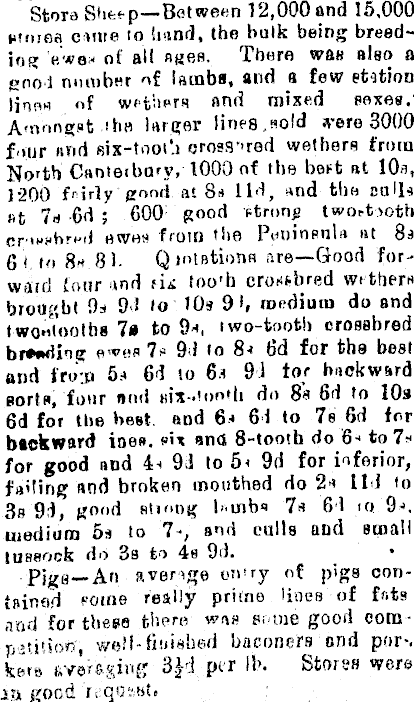 Store Sheep—Between 12,000 and 15,000
stores came to hand, the bulk being breed-
ing ewes of all ages. There was also a
good number of lambs, and a few station
lines of wethers and mixed sexes.
Amongst the larger lines sold were 3000
four and six-tooth crossbred wethers from
North Canterbury, 1000 of the best at 10s,
1200 fairly good at 8s 11d, and the culls
at 7s 6d; 600 good strong two-tooth
crossbred ewes from the Peninsula at 8s
6d to 8s 8d. Quotations are—Good for-
ward four and six tooth crossbred wethers
brought 9s 9d to 10s 9d, medium do and
two-tooths 7s to 9s, two-tooth crossbred
breeding ewes 7s 9d to 8s 6d for the best
and from 5s 6d to 6s 9d for backward
sorts, four and six-tooth do 8s 6d to 10s
6d for the best, and 6s 6d to 7s 6d for
backward ines, six and 8-tooth do 6s to 7s
for good and 4s 9d to 5s 9d for inferior,
failing and broken mouthed do 2s 11d to
3s 9d, good strong lambs 7s 6d to 9s,
medium 5s to 7s, and culls and small
tussock do 3s to 4s 9d.
Pigs—An average entry of pigs con-
tained some really prime lines of fats
and for these there was some good com-
petition, well-finished baconers and por-
kers averaging 3½d per lb. Stores were
in good request.